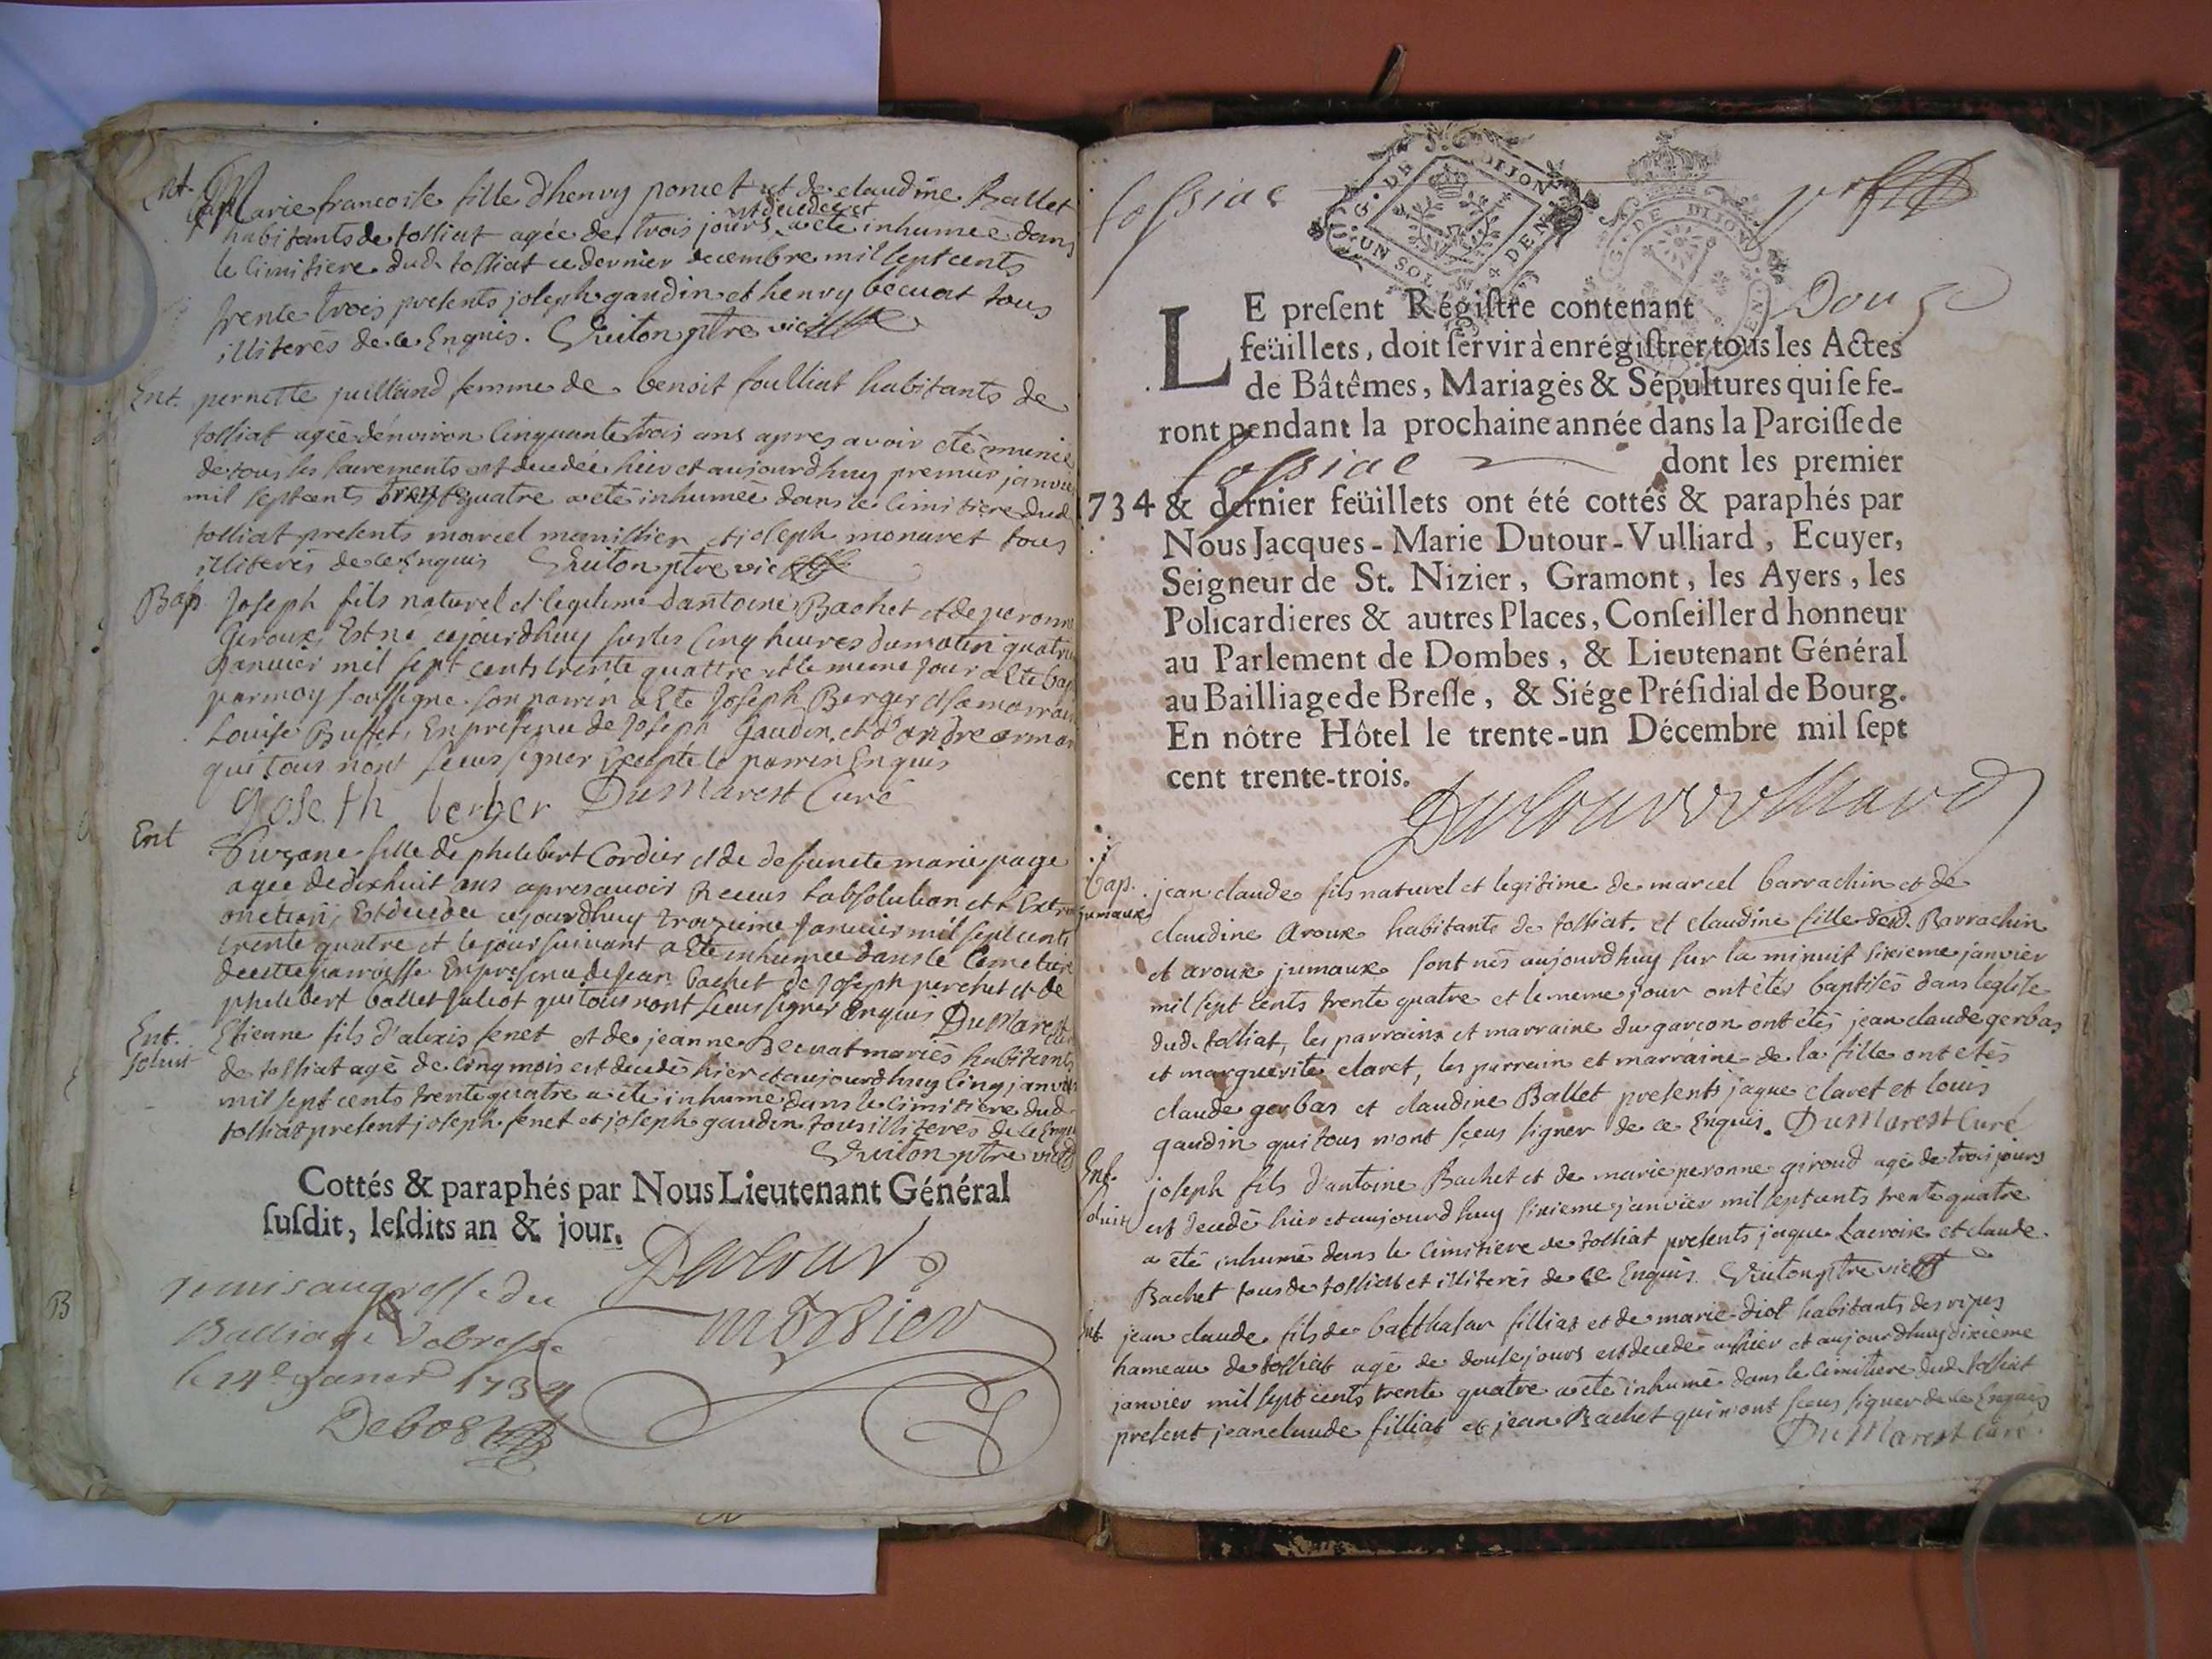 Ent. Marie francoise fille d'henry poncet et de claudine Ballet
habitants de tossiat agée de trois jours est decedée et a eté inhumée dans
le cimitiere dud. tossiat ce dernier decembre mil sept cents
trente trois presents joseph gaudin et henry becuat tous
illiterés de ce Enquis. Guiton ptre vic
Ent. pernette juilland femme de benoit soulliat habitants de
tossiat agée d'environ cinquante trois ans apres avoir eté munie
de tous les sacrements est decedée hier et aujourdhuy premier janvier
mil sept cents trente quatre a eté inhumée dans le cimitiere dud
tossiat presents marcel manissier et joseph monavet tous
illiterés de ce Enquis Guiton ptre vic
Bap. Joseph fils naturel et legitime d'antoine Bachet et de peronne
Giroux, Est né cejourdhuy sur les cinq heures du matin quatrie
Janvier mil sept cents trente quattre et le meme jour a Eté bap
par moy soussigné son parrin a Eté Joseph Berger et sa marrain
Louise Buffet, En presence de Joseph Gaudin, et d'andre arman
qui tous n'ont sceus signer Excepté le parrin Enquis
Joseth berger DuMarest Curé
Ent Suzane fille de philebert Cordier et de defuncte marie page
agee de dixhuit ans apres avoir Receus l'absolution et l'Extre
onction, Est decedee cejourdhuy troizieme Janvier mil sept cents
trente quatre et le jour suivant a Eté inhumee dans le Cemetiere
de cette parroisse En presence de Jean Bachet de Joseph perchet et de
philebert Ballet Juliot qui tous n'ont sceus signer Enquis DuMarest
Ent. Etienne fils d'alexis fenet et de jeanne Becuat mariés habitants
soluit de tossiat agé de cinq mois est decedé hier et aujourdhuy cinq janvier
mil sept cents trente quatre a eté inhumé dans le cimitiere dud.
tossiat present joseph fenet et joseph gaudin tous illiterés de ce Enquis
Guiton ptre vic
Cottés & paraphés par Nous Lieutenant Général
susdit, lesdits an & jour.
Dutour
remis au greffe du
Balliage de bresse
le 14e Janer 1734
Debost
B
Tossiat
G. DE DIJON
UN SOL 4 DEN
G. DE DIJON
Douze
LE present Régistre contenant
feüillets, doit servir à enrégistrer tous les Actes
de Bâtêmes, Mariages & Sépultures qui se fe-
ront pendant la prochaine année dans la Paroisse de
Tossiat dont les premier
1734 & dernier feüillets ont été cottés & paraphés par
Nous Jacques-Marie Dutour-Vulliard, Ecuyer,
Seigneur de St. Nizier, Gramont, les Ayers, les
Policardieres & autres Places, Conseiller d honneur
au Parlement de Dombes, & Lieutenant Général
au Bailliage de Bresse, & Siége Présidial de Bourg.
En nôtre Hôtel le trente-un Décembre mil sept
cent trente-trois.
Dutour vulliard
Bap. jean claude fils naturel et legitime de marcel barrachin et de
jumaux claudine aroux habitants de tossiat. et claudine fille desd. Barrachin
et aroux jumaux sont nés aujourdhuy sur la minuit sixieme janvier
mil sept cents trente quatre et le meme jour ont étés baptisés dans leglise
dud. tossiat, les parrains et marraine du garcon ont étés jean claude gerbas
et marguerite claret, les parrain et marraine de la fille ont etés
claude gerbas et claudine Ballet presents jaque claret et louis
gaudin qui tous n'ont sceus signer de ce Enquis. DuMarest Curé
Ent. joseph fils d'antoine Bachet et de marie peronne giroud agé de trois jours
soluit est decedé hier et aujourdhuy sixieme janvier mil sept cents trente quatre
a eté inhumé dans le cimitiere de tossiat presents jaque Lacroix et claude
Bachet tous de tossiat et illiterés de ce Enquis. Guiton ptre vic
Ent. jean claude fils de balthasar filliat et de marie diot habitants des ripes
hameau de tossiat agé de douse jours est decedé hier et aujourdhuy dixieme
janvier mil sept cents trente quatre a eté inhumé dans le cimitiere dud. tossiat
present jean claude filliat et jean Bachet qui n'ont sceus signer de ce Enquis
DuMarest Curé.